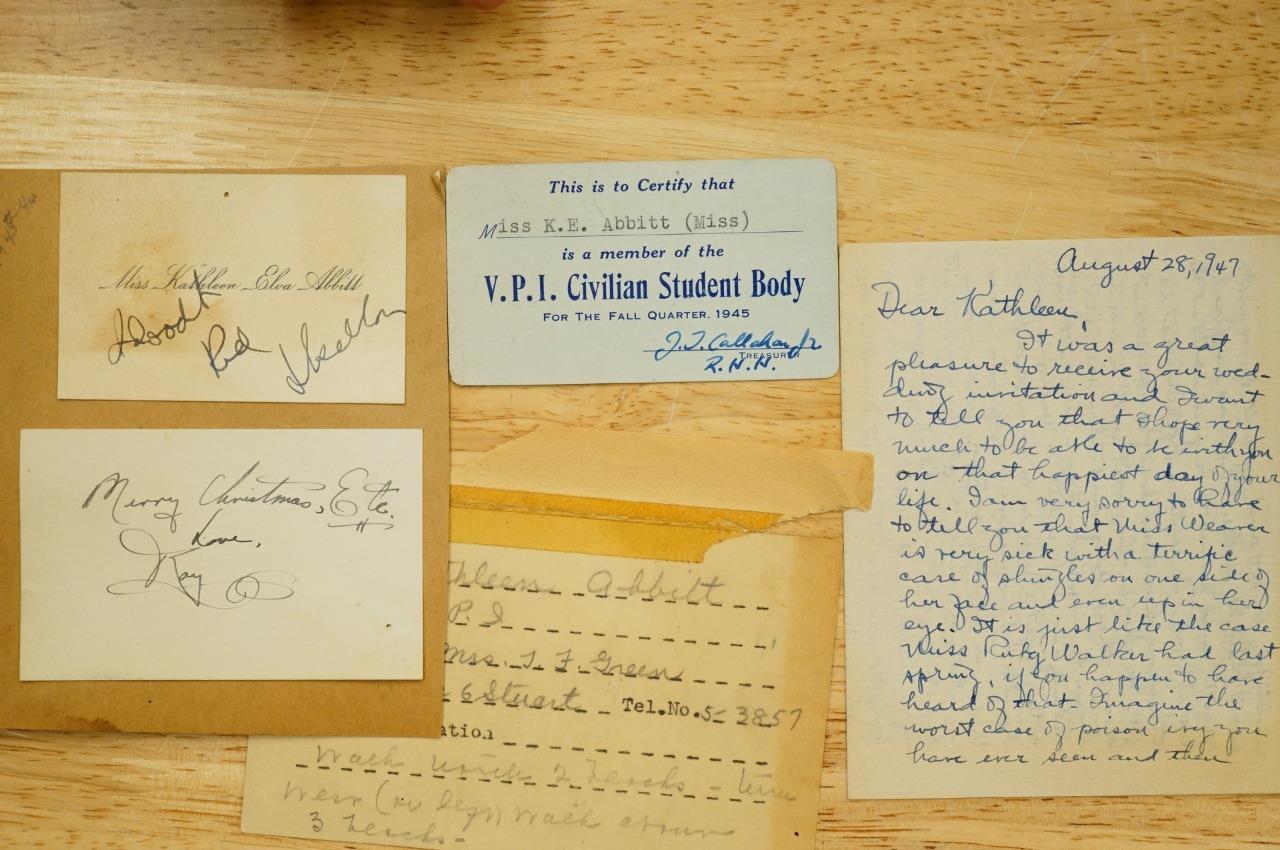 Miss Kathleen Elva Abbitt
Red
Merry Christmas, Etc.
Love,
Ray
This is to Certify that
Miss K.E. Abbitt (Miss)
is a member of the
V.P.I. Civilian Student Body
FOR THE FALL QUARTER, 1945
J.T. Callahan, Jr
TREASURER
R.N.H.
thleen Abbitt
P.I
Mrs. T F Green
6 Stuart Tel.No.5-3857
ation
Walk north 2 blocks - turn
West (or left) walk about
3 blocks-
August 28, 1947
Dear Kathleen,
It was a great
pleasure to receive your wed-
ding invitation and I want
to tell you that I hope very
much to be able to be with you
on that happiest day of your
life. I am very sorry to have
to tell you that Miss Weaver
is very sick with a terrific
case of shingles on one side of
her face and even up in her
eye. It is just like the case
Miss Ruby Walker had last
spring, if you happen to have
heard of that. Imagine the
worst case of poison ivy you
have ever seen and then